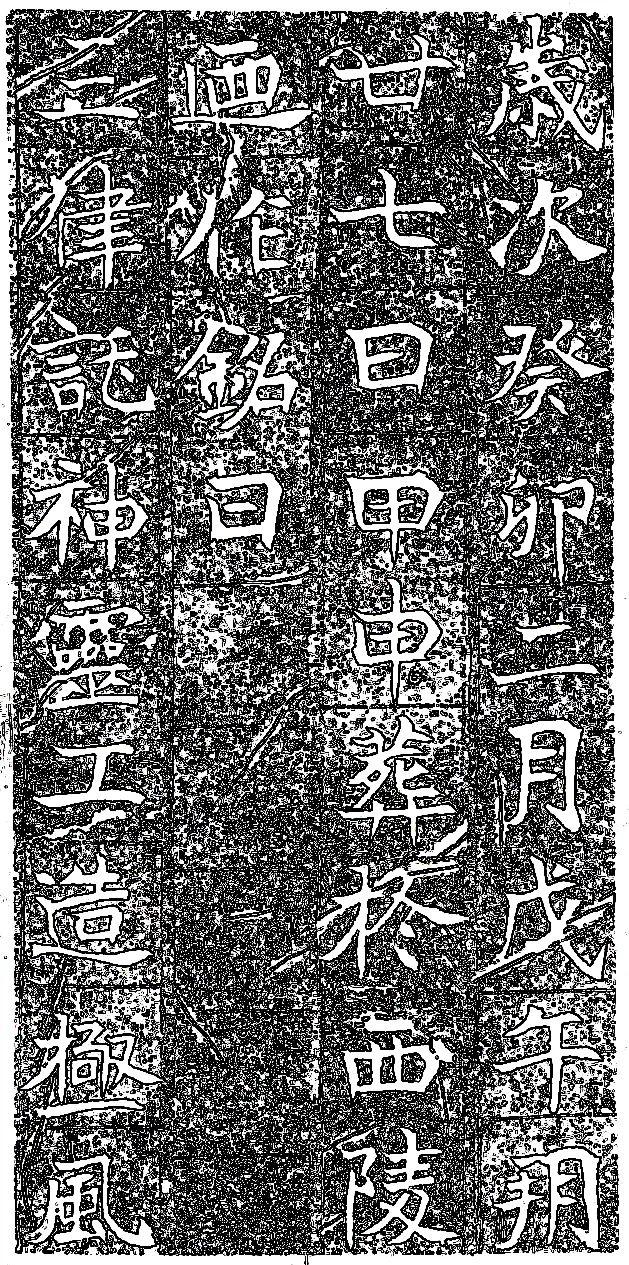 歲次癸卯二月戊午朔
廿七日甲申葬於西陵
迺作銘曰
律託神靈工造極風